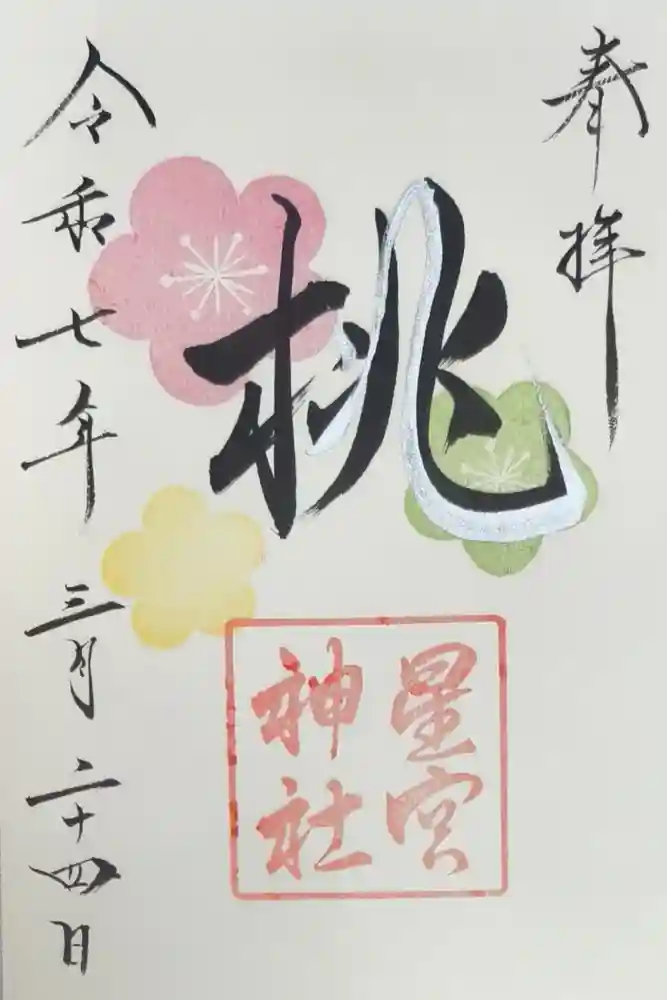 奉拝
桃
星宮
神社
令和七年三月二十四日